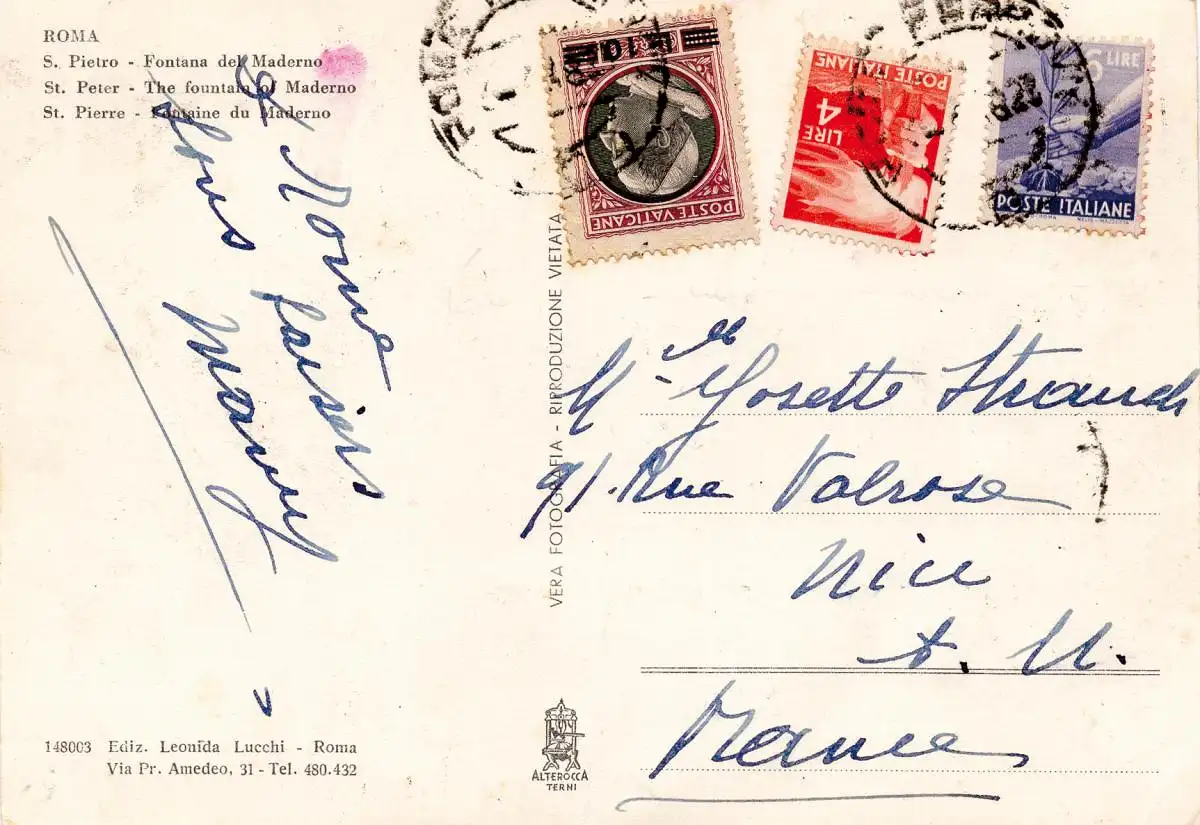 ROMA
S. Pietro - Fontana del Maderno
St. Peter - The fountain of Maderno
St. Pierre - Fontaine du Maderno
De Rome
bons baisers
Many
POSTE VATICANE
LIRE 4
POSTE ITALIANE
6 LIRE
POSTE ITALIANE
VERA FOTOGRAFIA - RIPRODUZIONE VIETATA
M elle Yosette Strauch
91. Rue Valrose
Nice
A. M.
France
148003 Ediz. Leonida Lucchi - Roma
Via Pr. Amedeo, 31 - Tel. 480.432
ALTEROCCA
TERNI